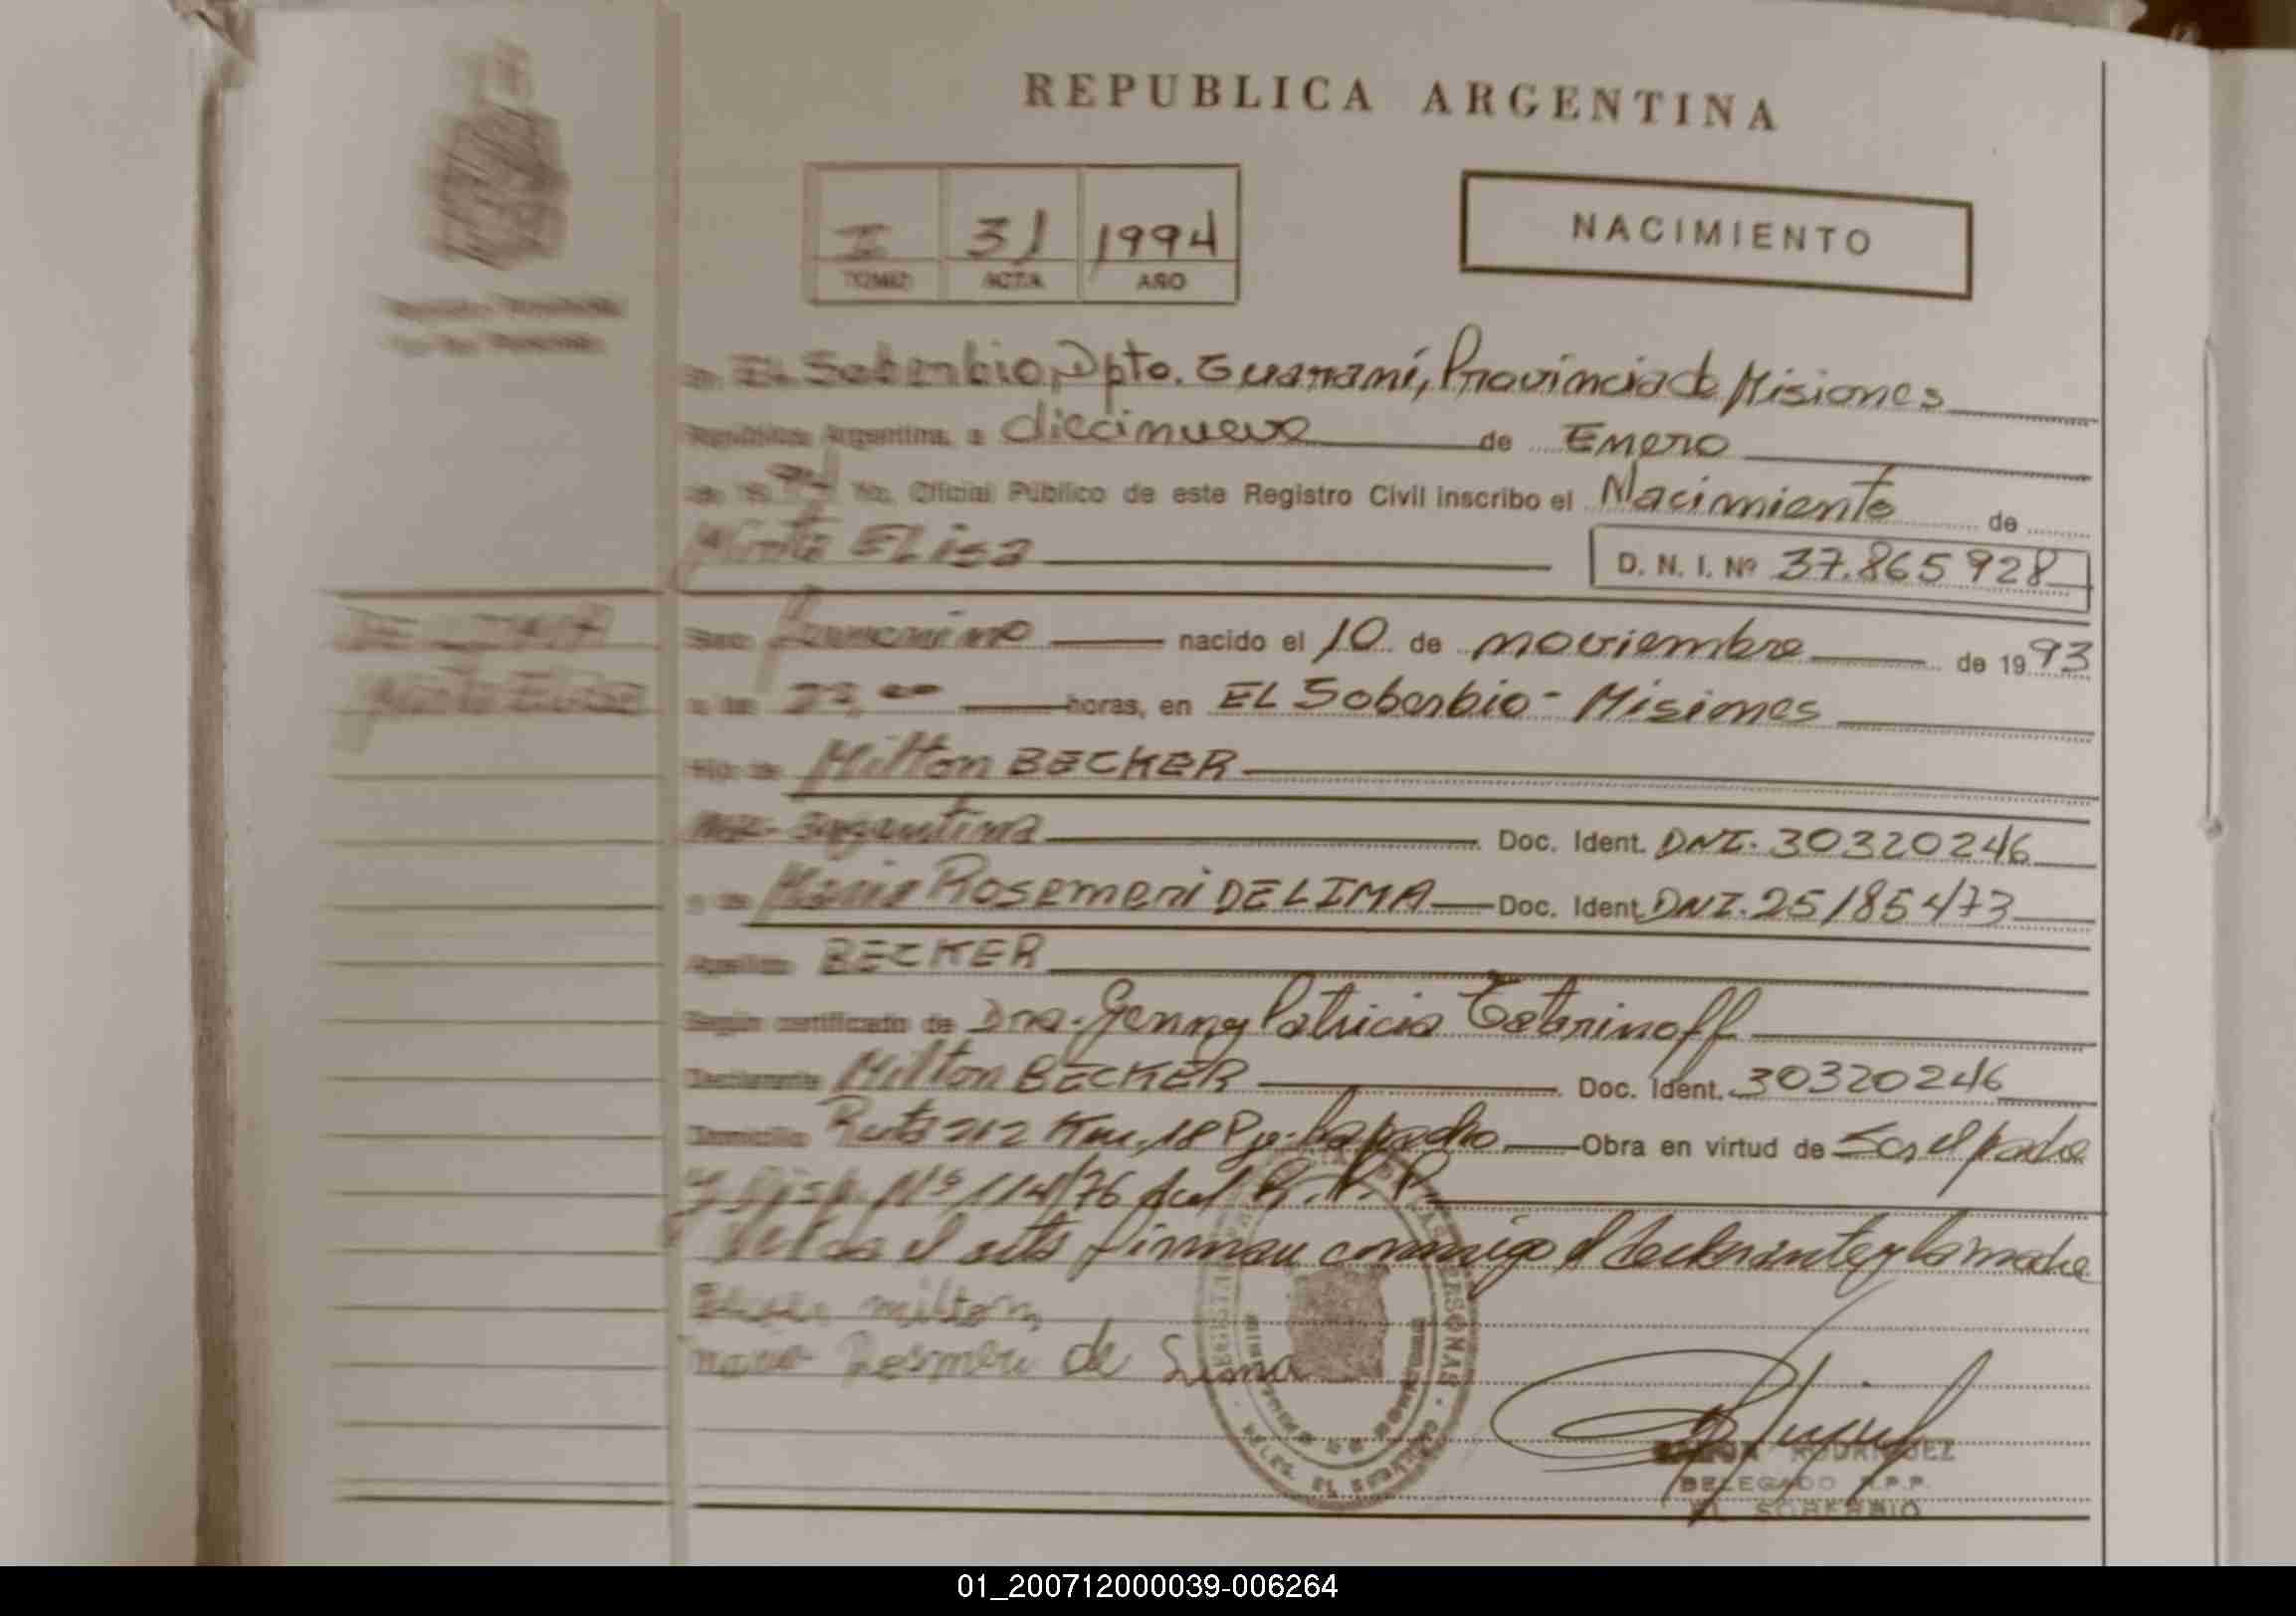 REPUBLICA ARGENTINA
I 31 1994
TOMO ACTA AÑO
NACIMIENTO
En EL Soberbio, Dpto. Guaraní, Provincia de Misiones
República Argentina, a diecinueve de Enero
de 19 94 Yo, Oficial Público de este Registro Civil inscribo el Nacimiento de
Mirta ELisa
D. N. I. Nº 37.865928
Sexo femenino nacido el 10 de noviembre de 1993
a las horas, en EL Soberbio - Misiones
Hijo de Milton BECKER
Nac. argentina Doc. Ident. DNI. 30320246
y de Maria Rosemeri DE LIMA Doc. Ident. DNI. 25185473
Apellido BECKER
Según certificado de Dra. Genny Patricia
Declarante Milton BECKER Doc. Ident. 30320246
Domicilio Ruta 212 Km. 18 Pje. Obra en virtud de Ser el padre
y Disp. Nº 114/76 del R.P.P.
el acta firman conmigo el declarante y la madre
milton
maria de Lima
RODRIGUEZ
DELEGADO R.P.P.
EL SOBERBIO
01_200712000039-006264